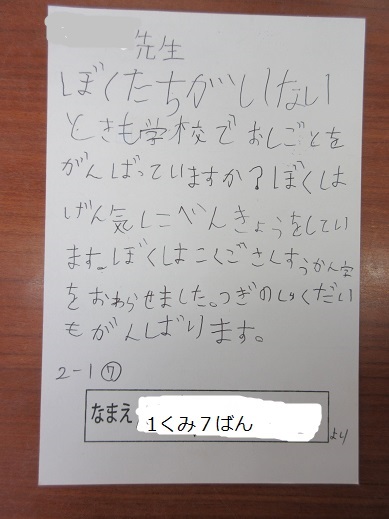 先生
ぼくたちがいない
ときも学校でおしごとを
がんばっていますか?ぼくは
げん気にべんきょうをしてい
ます。ぼくはこくごさんすうかん字
をおわらせました。つぎのしゅくだい
もがんばります。
2-1⑦
なまえ 1くみ7ばん
より